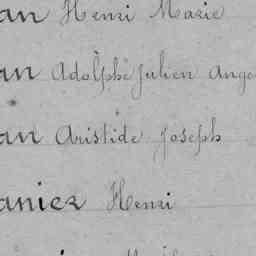 an Henri Marie
an Adolphe Julien Ange
an Aristide Joseph
aniez Henri